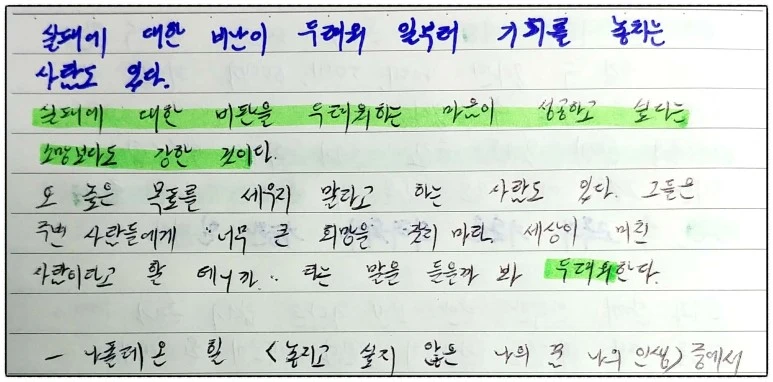 실패에 대한 비난이 두려워 일부러 기회를 놓치는
사람도 있다.
실패에 대한 비판을 두려워하는 마음이 성공하고 싶다는
소망보다도 강한 것이다.
또 높은 목표를 세우지 말라고 하는 사람도 있다. 그들은
주변 사람들에게 "너무 큰 희망을 걸지 마라. 세상이 미친
사람이라고 할 테니까.." 라는 말을 들을까 봐 두려워한다.
- 나폴레온 힐 <놓치고 싶지 않은 나의 꿈 나의 인생> 중에서